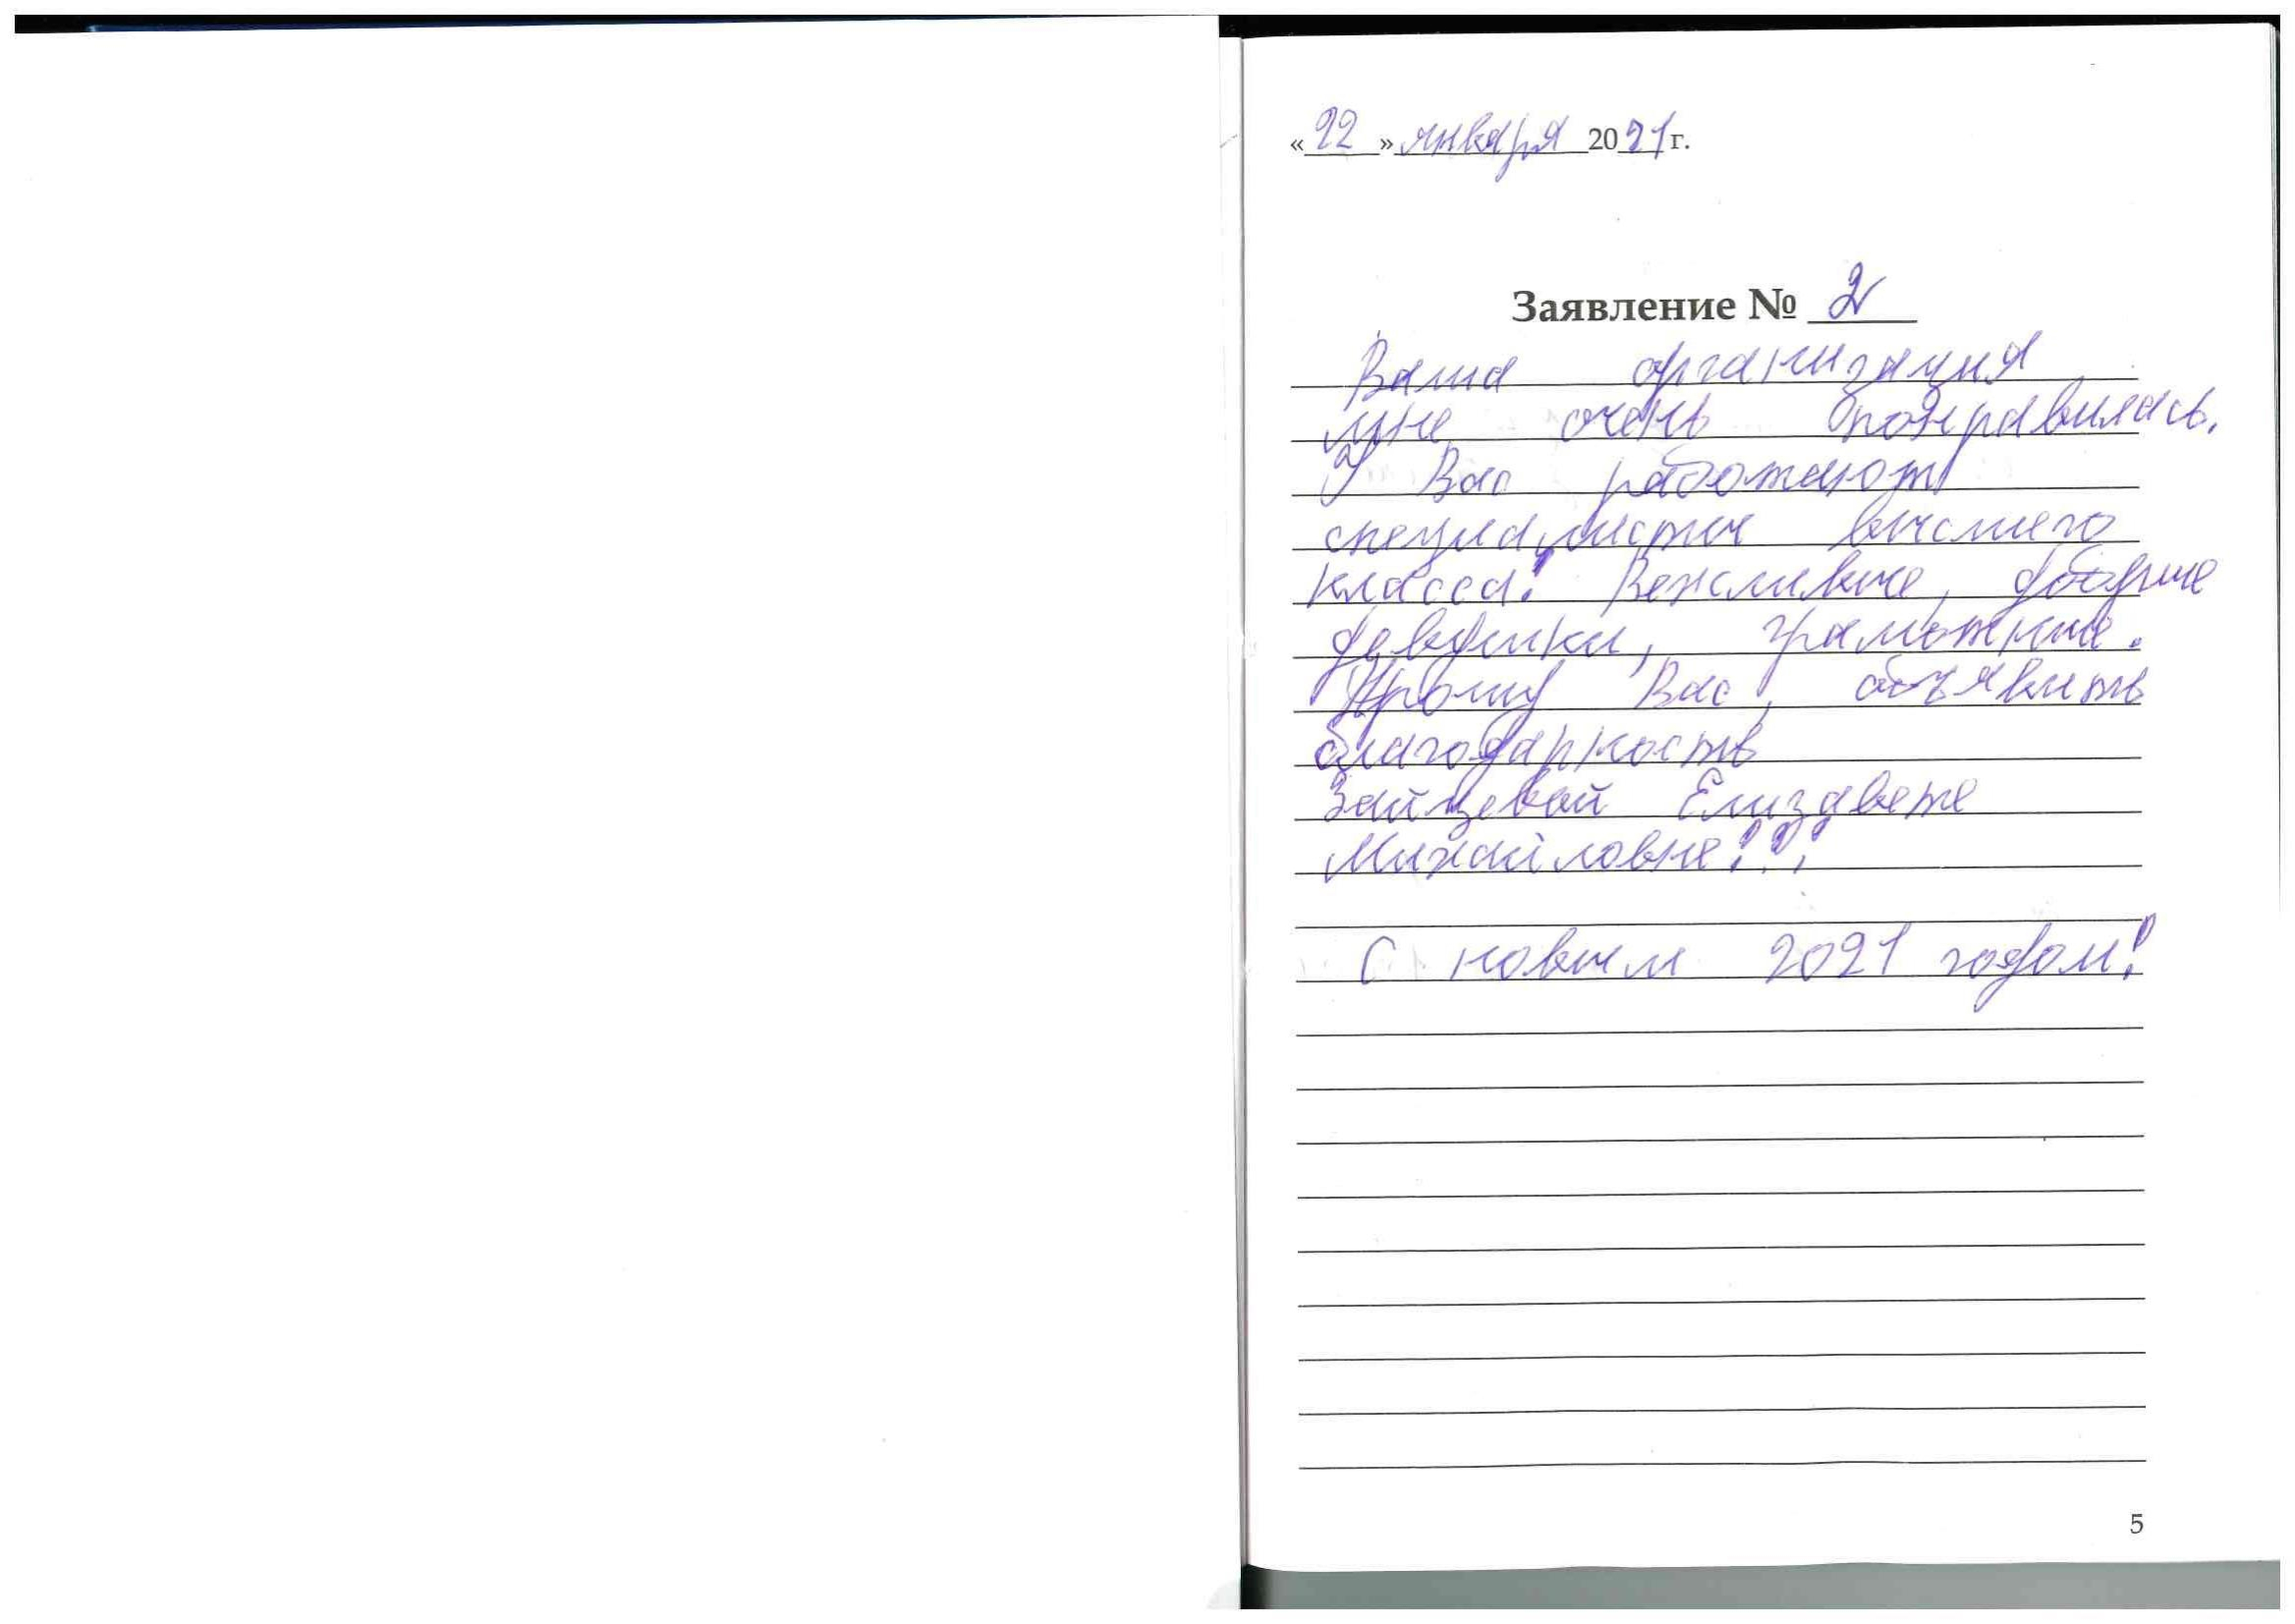 «22» января 2021 г.
Заявление № 2
Ваша организация
мне очень понравилась.
У Вас работают
специалисты высшего
класса! Вежливые, добрые
девушки, грамотные.
Прошу Вас, объявить
благодарность
Зайцевой Елизавете
Михайловне!!!
С новым 2021 годом!
5